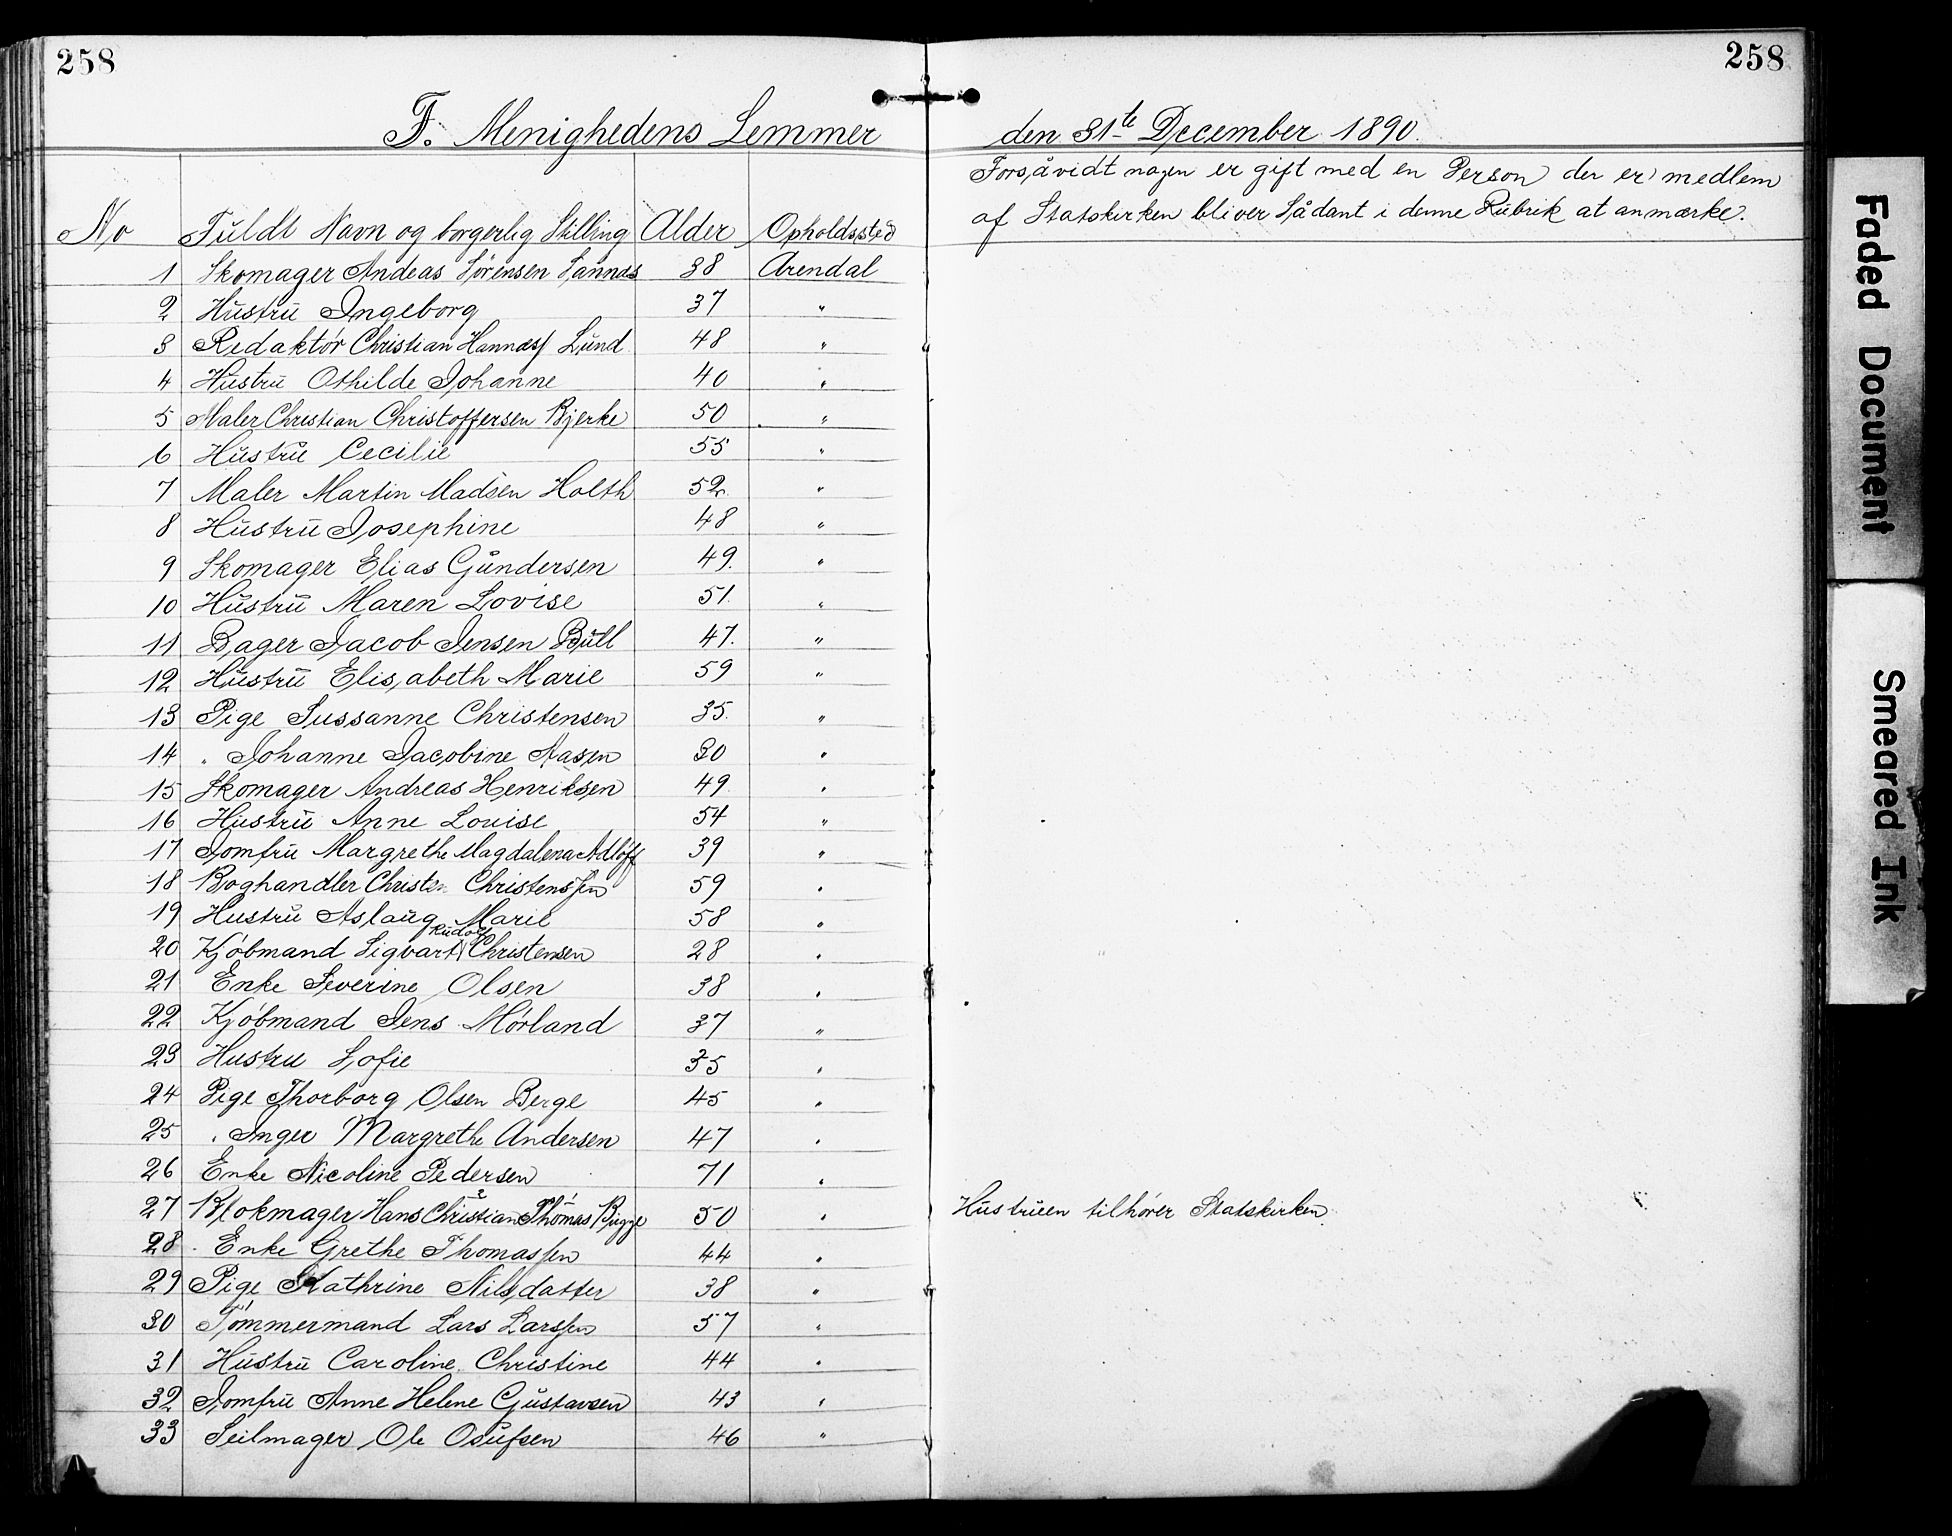 258
258
F. Menighedens Lemmer den 31te December 1890.
Forsåvidt nogen er gift med en Person der er medlem
af Statskirken bliver Sådant i denne Rubrik at anmærke.
No Fuldt Navn og borgerlig Stilling Alder Opholdssted
1 Skomager Andeas Sørensen Sannæs 38 Arendal
2 Hustru Ingeborg 37 "
3 Redaktør Christian Lund 48 "
4 Hustru Othilde Johanne 40 "
5 Maler Christian Christoffersen Bjerke 50 "
6 Hustru Cecilie 55 "
7 Maler Martin Madsen Holth 52 "
8 Hustru Josephine 48 "
9 Skomager Elias Gundersen 49. "
10 Hustru Maren Lovise 51. "
11 Bager Jacob Jensen Bull 47. "
12 Hustru Elisabeth Marie 59 "
13 Pige Sussanne Christensen 35. "
14 " Johanne Jacobine Aasen 30 "
15 Skomager Andreas Henriksen 49. "
16 Hustru Anne Louise 54 "
17 Jomfru Margrethe Magdalena Adloff 39 "
18 Boghandler Christen Christenssen 59 "
19 Hustru Aslaug Marie 58 "
20 Kjøbmand Sigvart Rudolf Christensen 28 "
21 Enke Severine Olsen 38 "
22 Kjøbmand Jens Mørland 37 "
23 Hustru Sofie 35 "
24 Pige Thorborg Olsen Berge 45 "
25 " Inger Margrethe Andersen 47 "
26 Enke Nicoline Pedersen 71 "
27 Blokmager Hans Christian Thomas Bugge 50 " Hustruen tilhører Statskirken.
28 Enke Grethe Thomassen 44 "
29 Pige Kathrine Nilsdatter 38 "
30 Tømmermand Lars Larssen 57 "
31 Hustru Caroline Christine 44 "
32 Jomfru Anne Helene Gustavsen 43 "
33 Seilmager Ole Osufsen 46 "
Faded Document
Smeared Ink